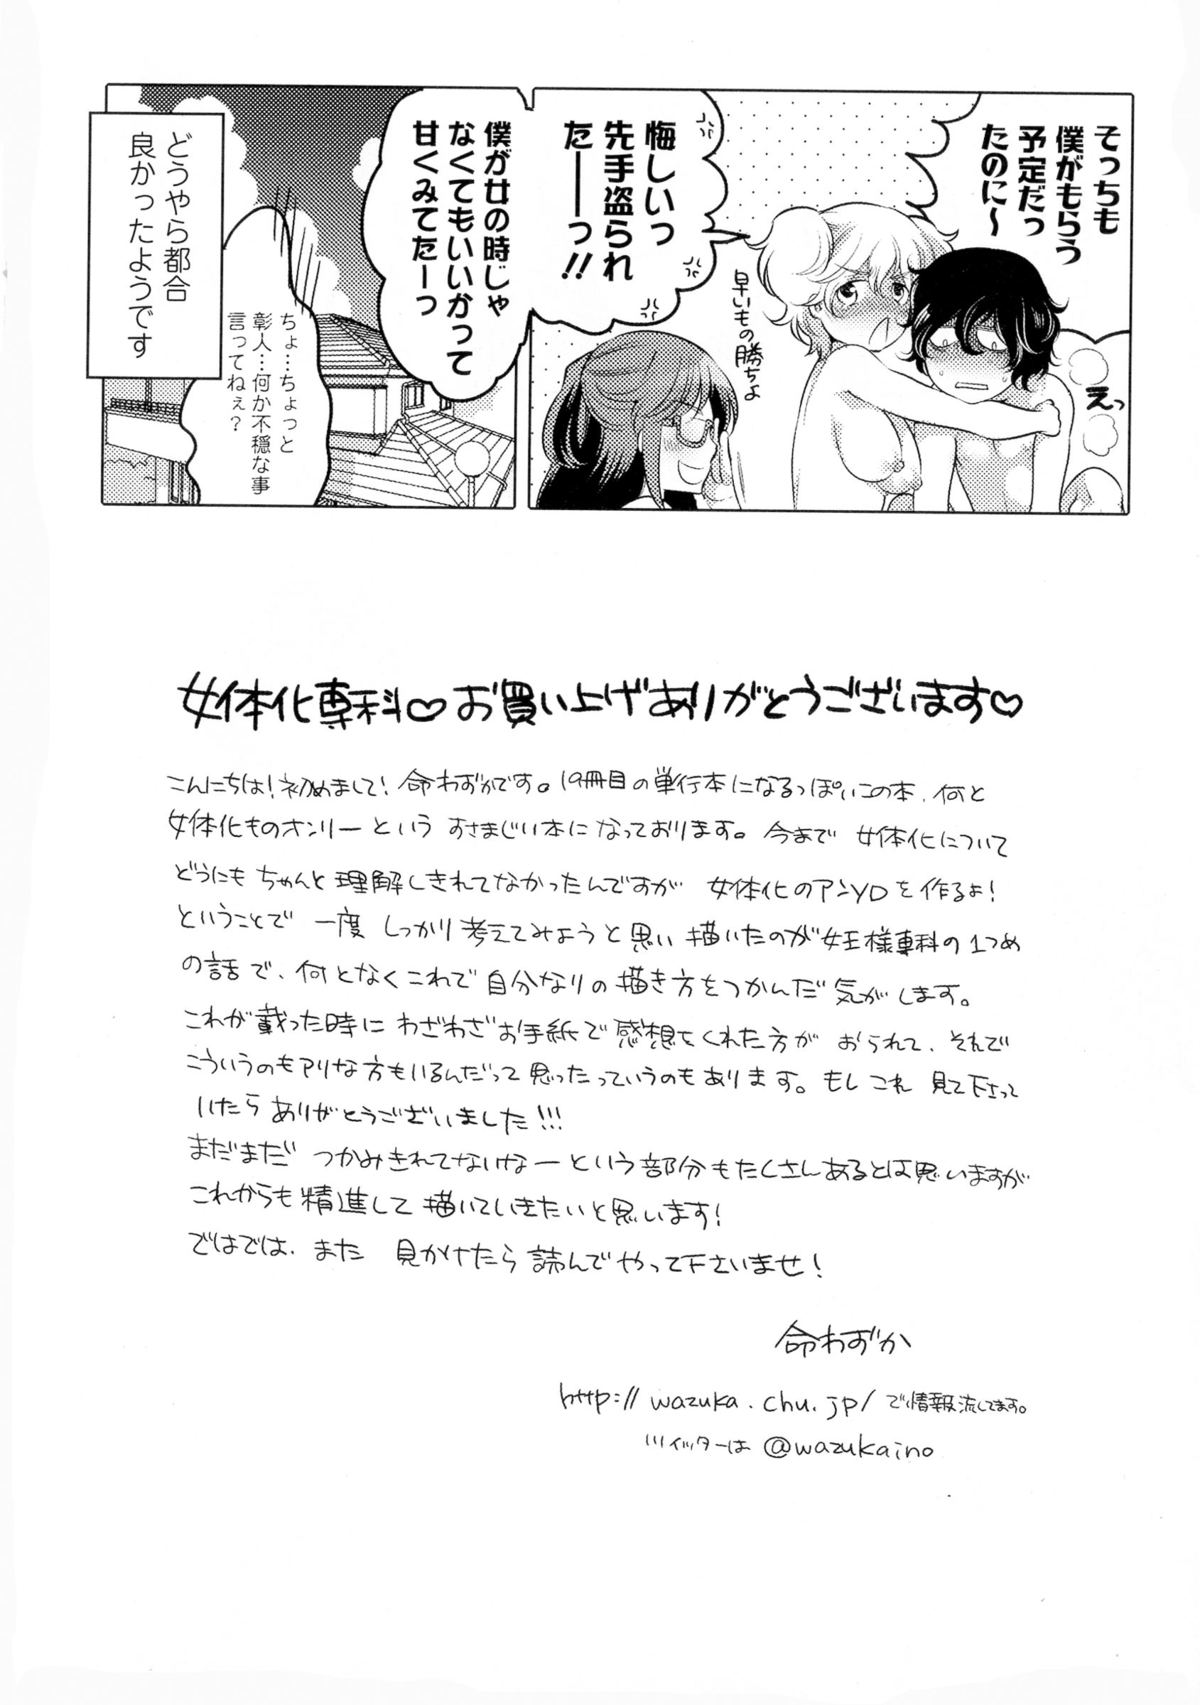 そっちも
僕がもらう
予定だっ
たのに〜
えっ
悔しいっ
先手盗られ
たーーっ!!
早いもの勝ちよ
僕が女の時じゃ
なくてもいいかって
甘くみてたーっ
ちょ…ちょっと
彰人…何か不穏な事
言ってねぇ?
どうやら都合
良かったようです
女体化専科♡お買い上げありがとうございます♡
こんにちは!初めまして!命わずかです。19冊目の単行本になるっぽいこの本、何と
女体化ものオンリーという すさまじい本になっております。今まで 女体化について
どうにも ちゃんと理解しきれてなかったんですが 女体化のアンソロを作るよ!
ということで 一度 しっかり考えてみようと思い 描いたのが女王様専科の1つめ
の話で、何となくこれで自分なりの描き方をつかんだ気がします。
これが載った時に わざわざお手紙で感想をくれた方が おられて、それで
こういうのもアリな方もいるんだって思ったっていうのもあります。もしこれ 見て下さって
いたら ありがとうございました!!!
まだまだ つかみきれてないなーという部分もたくさんあるとは思いますが
これからも精進して描いていきたいと思います!
ではでは、また 見かけたら読んでやって下さいませ!
命わずか
http://wazuka.chu.jp/で情報流してます。
ツイッターは @wazukaino